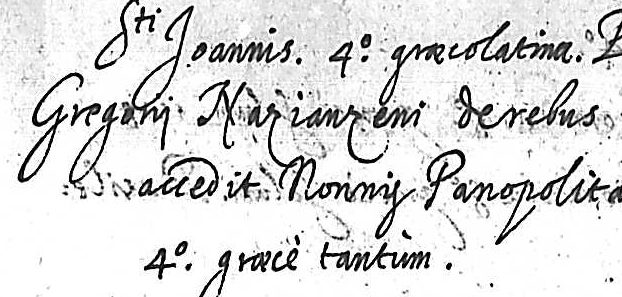 Sti Joannis. 4º. græcolatina.
Gregorij Nazianzeni de rebus
accedit Nonnij Panopolita
4º. græcè tantùm.